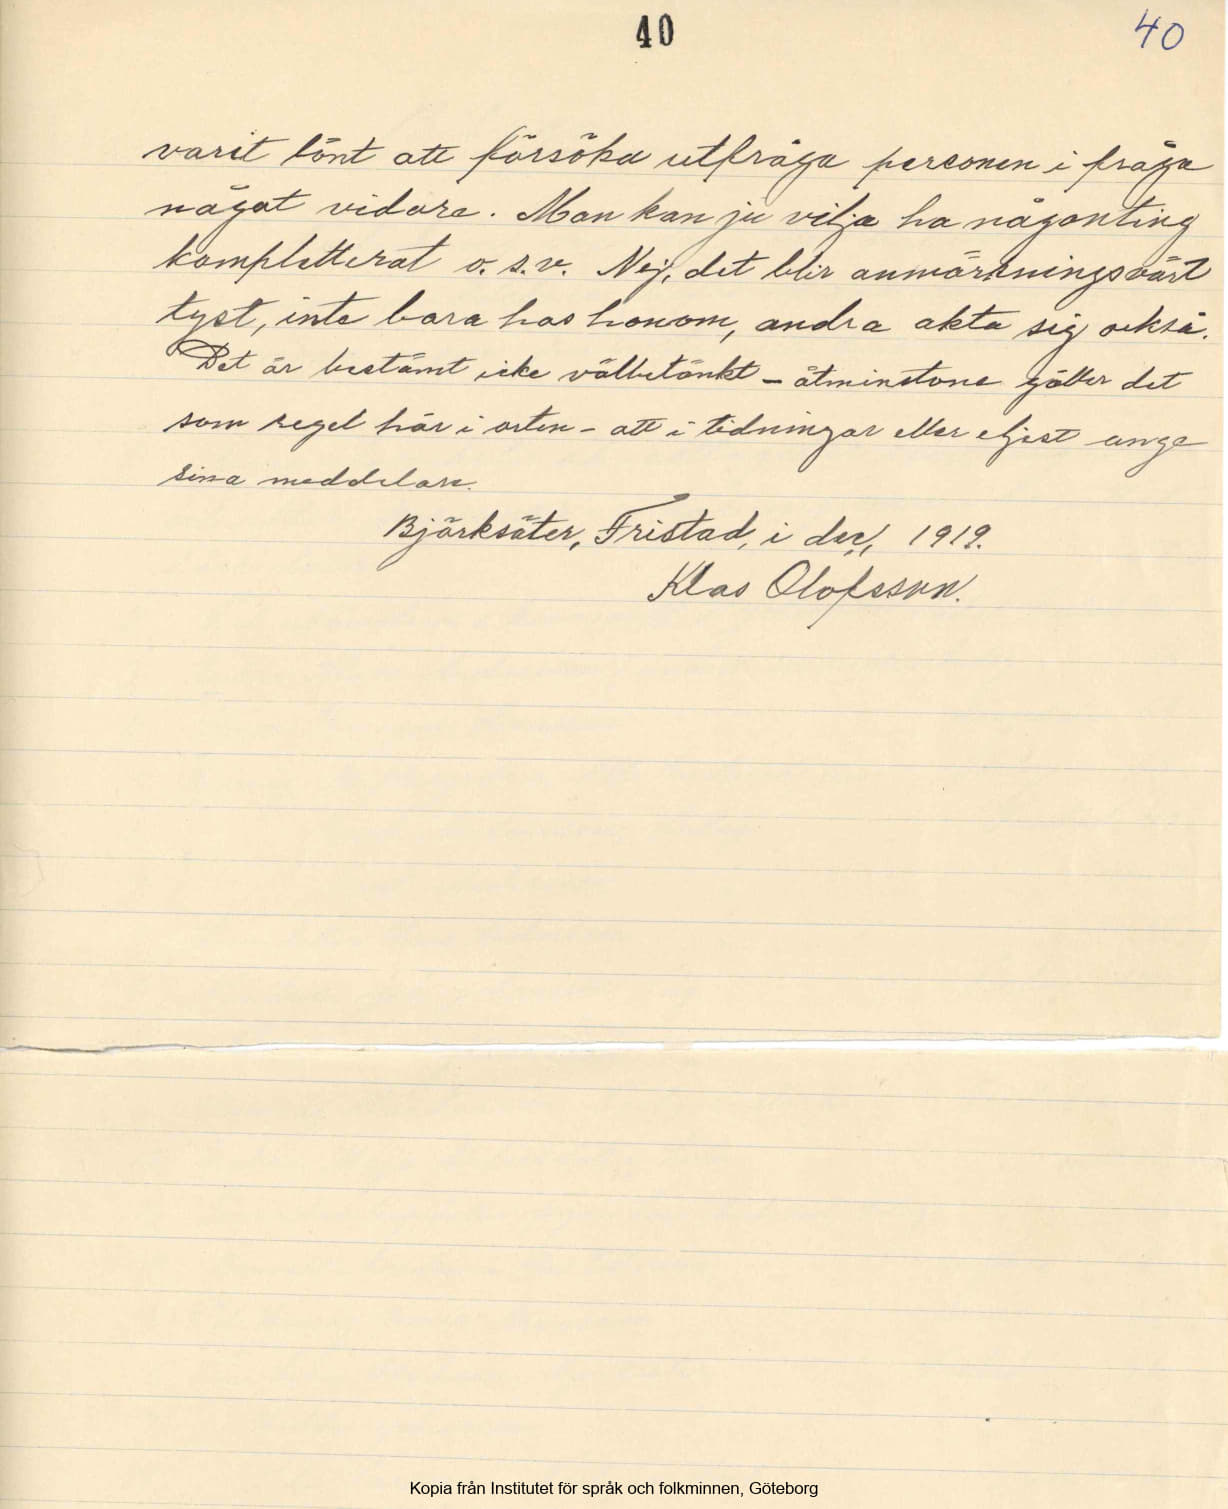 40
40
varit lönt att försöka utfråga personen i fråga
något vidare. Man kan ju vilja ha någonting
kompletterat o. s. v. Nej, det blir anmärkningsvärt
tyst, inte bara hos honom, andra akta sig också.
Det är bestämt icke välbetänkt – åtminstone gäller det
som regel här i orten – att i tidningar eller eljest ange
sina meddelare.
Björksäter, Fristad, i dec., 1919.
Klas Olofsson.
Kopia från Institutet för språk och folkminnen, Göteborg